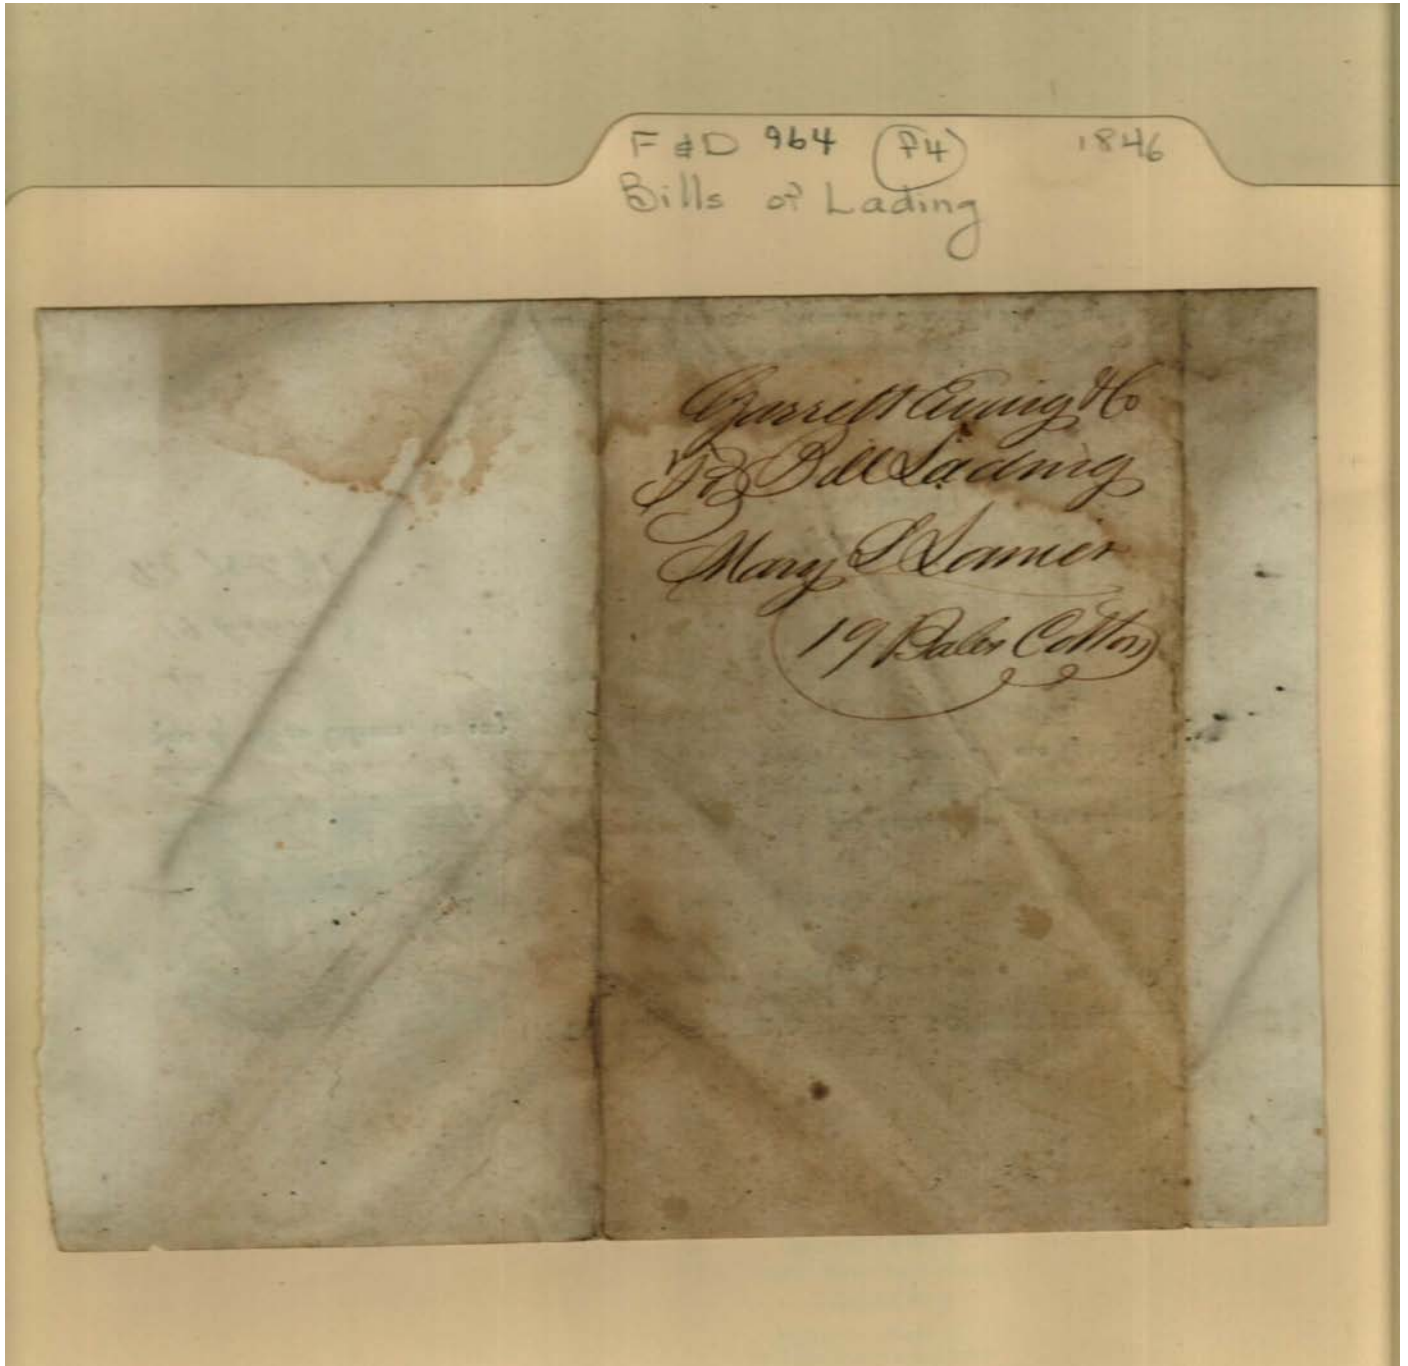 F & D 964 P4 1846
Bills of Lading
Garrett Ewing & Co
Bill Lading
Mary S Lanier
19 Bales Cotton